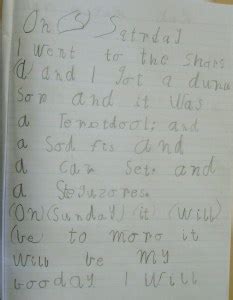 On (S) Satrday
I went to the shops
a and I got a duna
Son and it was
a and
a Sod fis and
a can Sets and
a Steguzores.
(On) (Sunday) (it) (will)
(be to moro it
Will be my
booday I will